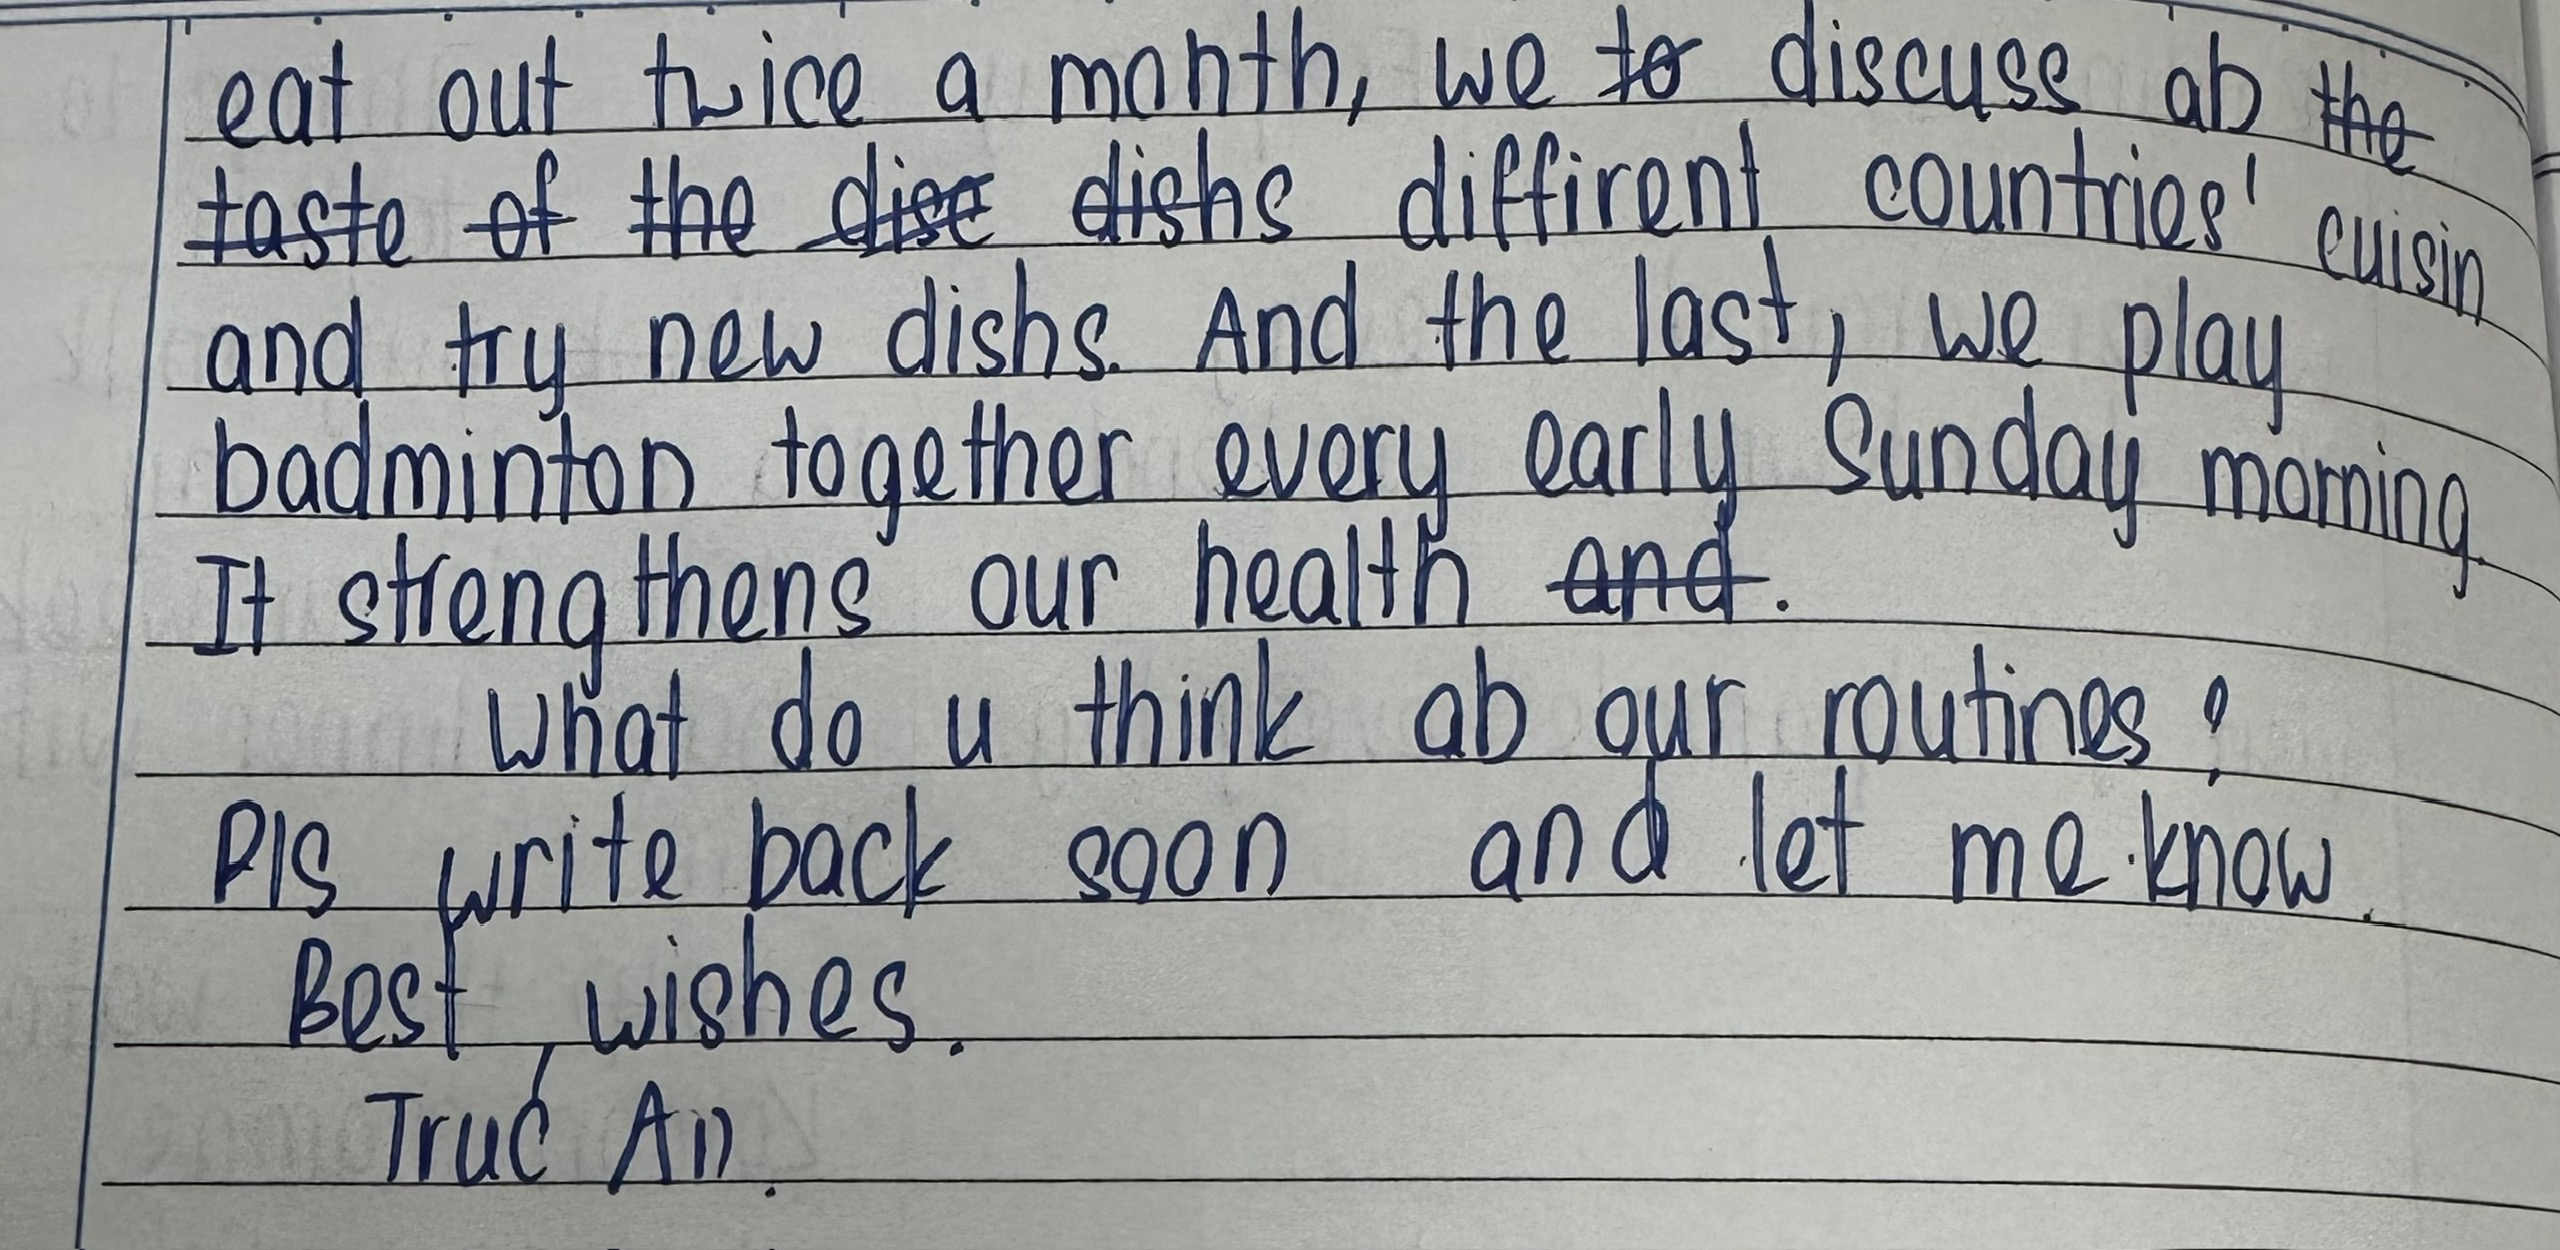 eat out twice a month, we to discuss ab the
taste of the disc dishs diffirent countries' cuisin
and try new dishs. And the last, we play
badminton together every early Sunday morning.
It strengthens our health and.
What do u think ab our routines?
Pls write back soon and let me know.
Best wishes.
Trúc An.